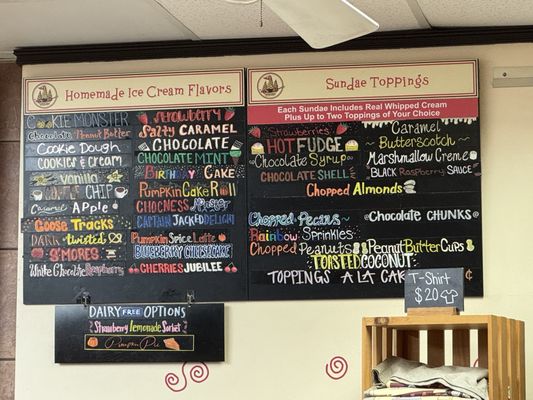 Homemade Ice Cream Flavors
COOKIE MONSTER
Chocolate Peanut Butter
Cookie Dough
COOKIES & CREAM
Vanilla
CHIP
Caramel Apple
GOOSE TRACKS
DARK twisted
S'MORES
White Chocolate Raspberry
Strawberry
Salty CARAMEL
CHOCOLATE
CHOCOLATE MINT
BIRTHDAY Cake
Pumpkin Cake Roll
CHOCNESS
CAPTAIN JACKED DELIGHT
Pumpkin Spice Latte
BLUEBERRY CHEESECAKE
CHERRIES JUBILEE
Sundae Toppings
Each Sundae Includes Real Whipped Cream
Plus Up to 2 Toppings of Your Choice
Strawberries
HOT FUDGE
Chocolate Syrup
CHOCOLATE SHELL
Chopped Almonds
Caramel
Butterscotch
Marshmallow Creme
BLACK Raspberry SAUCE
Chopped Pecans
Rainbow Sprinkles
Chopped Peanuts
Chocolate CHUNKS
Peanut Butter Cups
TOASTED COCONUT
TOPPINGS A LA
¢
DAIRY FREE OPTIONS
Strawberry Lemonade Sorbet
Pumpkin Pie
T-Shirt
$20